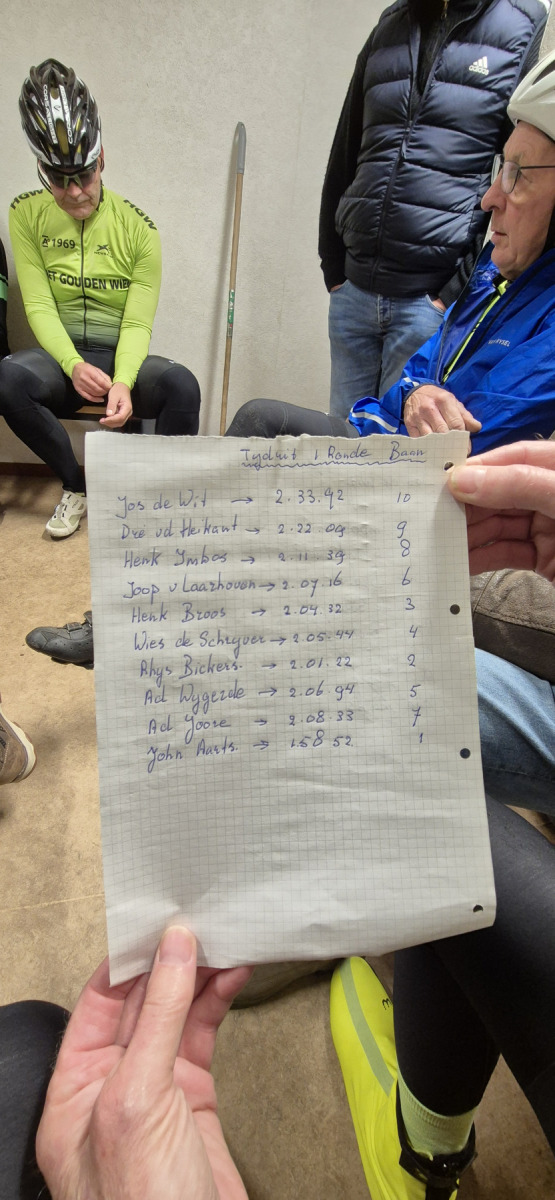 adidas
HGW
HGW
1969
ET GOUDEN WIEL
Tydrit 1 Ronde Baan
Jos de Wit → 2.33.92 10
Dré vd Heikant → 2.22.09 9
Henk Imbos → 2.11.39 8
Joop v Laarhoven → 2.07.16 6
Henk Broos → 2.04.32 3
Wies de Schryver → 2.05.44 4
Rhys Bickers. → 2.01.22 2
Ad Wygerde → 2.06.94 5
Ad Joore → 2.08.33 7
John Aarts. → 1.58.52 1